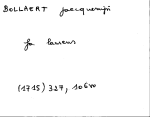 BOLLAERT Jacquemijn
fa laurens
(1715) 327, 106vo